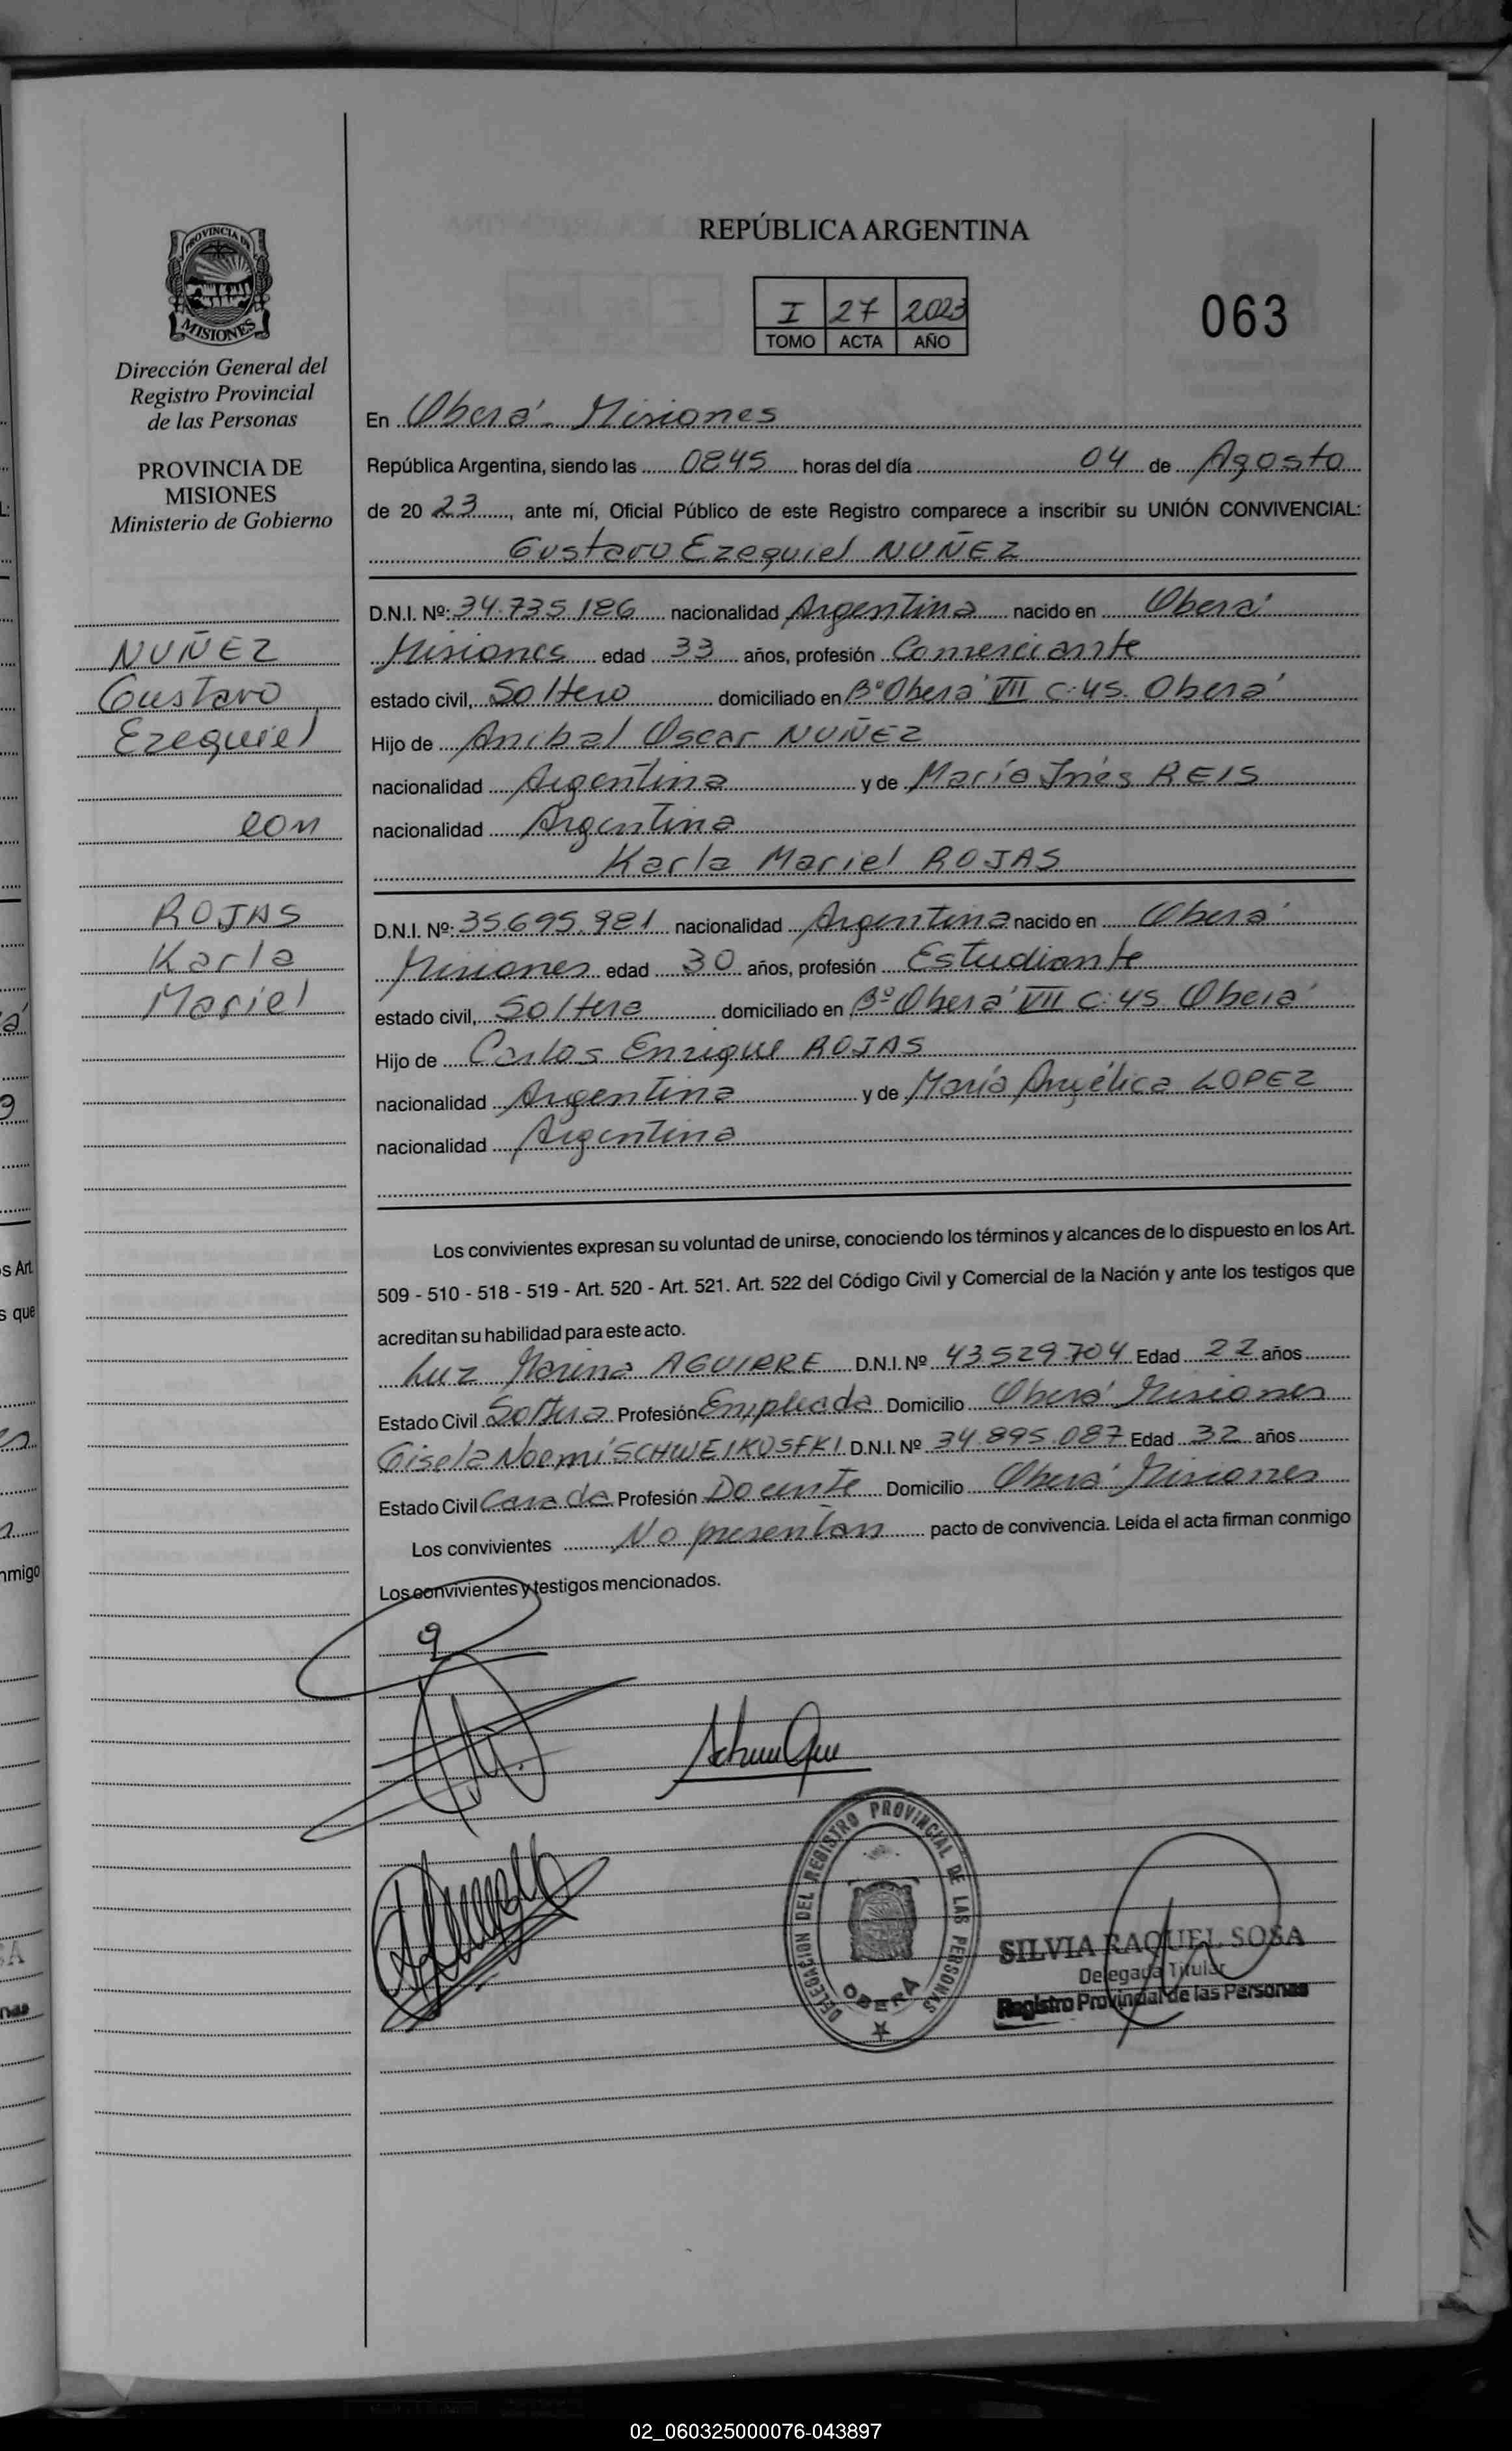 REPÚBLICA ARGENTINA
I 27 2023
TOMO ACTA AÑO
063
PROVINCIA DE
MISIONES
Dirección General del
Registro Provincial
de las Personas
PROVINCIA DE
MISIONES
Ministerio de Gobierno
NUÑEZ
Gustavo
Ezequiel
con
ROJAS
Karla
Mariel
En Oberá - Misiones
República Argentina, siendo las 0845 horas del día 04 de Agosto
de 20 23, ante mí, Oficial Público de este Registro comparece a inscribir su UNIÓN CONVIVENCIAL:
Gustavo Ezequiel NUÑEZ
D.N.I. Nº: 34.735.186 nacionalidad Argentina nacido en Oberá
Misiones edad 33 años, profesión Comerciante
estado civil, Soltero domiciliado en Bº Oberá VII C:45. Oberá
Hijo de Anibal Oscar NUÑEZ
nacionalidad Argentina y de María Inés REIS
nacionalidad Argentina
Karla Mariel ROJAS
D.N.I. Nº: 35695.981 nacionalidad Argentina nacido en Oberá
Misiones edad 30 años, profesión Estudiante
estado civil, Soltera domiciliado en Bº Oberá VII C:45 Oberá
Hijo de Carlos Enrique ROJAS
nacionalidad Argentina y de María Angélica LOPEZ
nacionalidad Argentina
Los convivientes expresan su voluntad de unirse, conociendo los términos y alcances de lo dispuesto en los Art.
509 - 510 - 518 - 519 - Art. 520 - Art. 521. Art. 522 del Código Civil y Comercial de la Nación y ante los testigos que
acreditan su habilidad para este acto.
Luz Marina AGUIRRE D.N.I. Nº 43529.704 Edad 22 años
Estado Civil Soltera Profesión Empleada Domicilio Oberá Misiones
Gisela Noemí SCHWEIKOSFKI D.N.I. Nº 34.895.087 Edad 32 años
Estado Civil Casada Profesión Docente Domicilio Oberá Misiones
Los convivientes No presentan pacto de convivencia. Leída el acta firman conmigo
Los convivientes y testigos mencionados.
DELEGACION DEL REGISTRO PROVINCIAL DE LAS PERSONAS
OBERA
SILVIA RAQUEL SOSA
Delegada Titular
Registro Provincial de las Personas
02_060325000076-043897